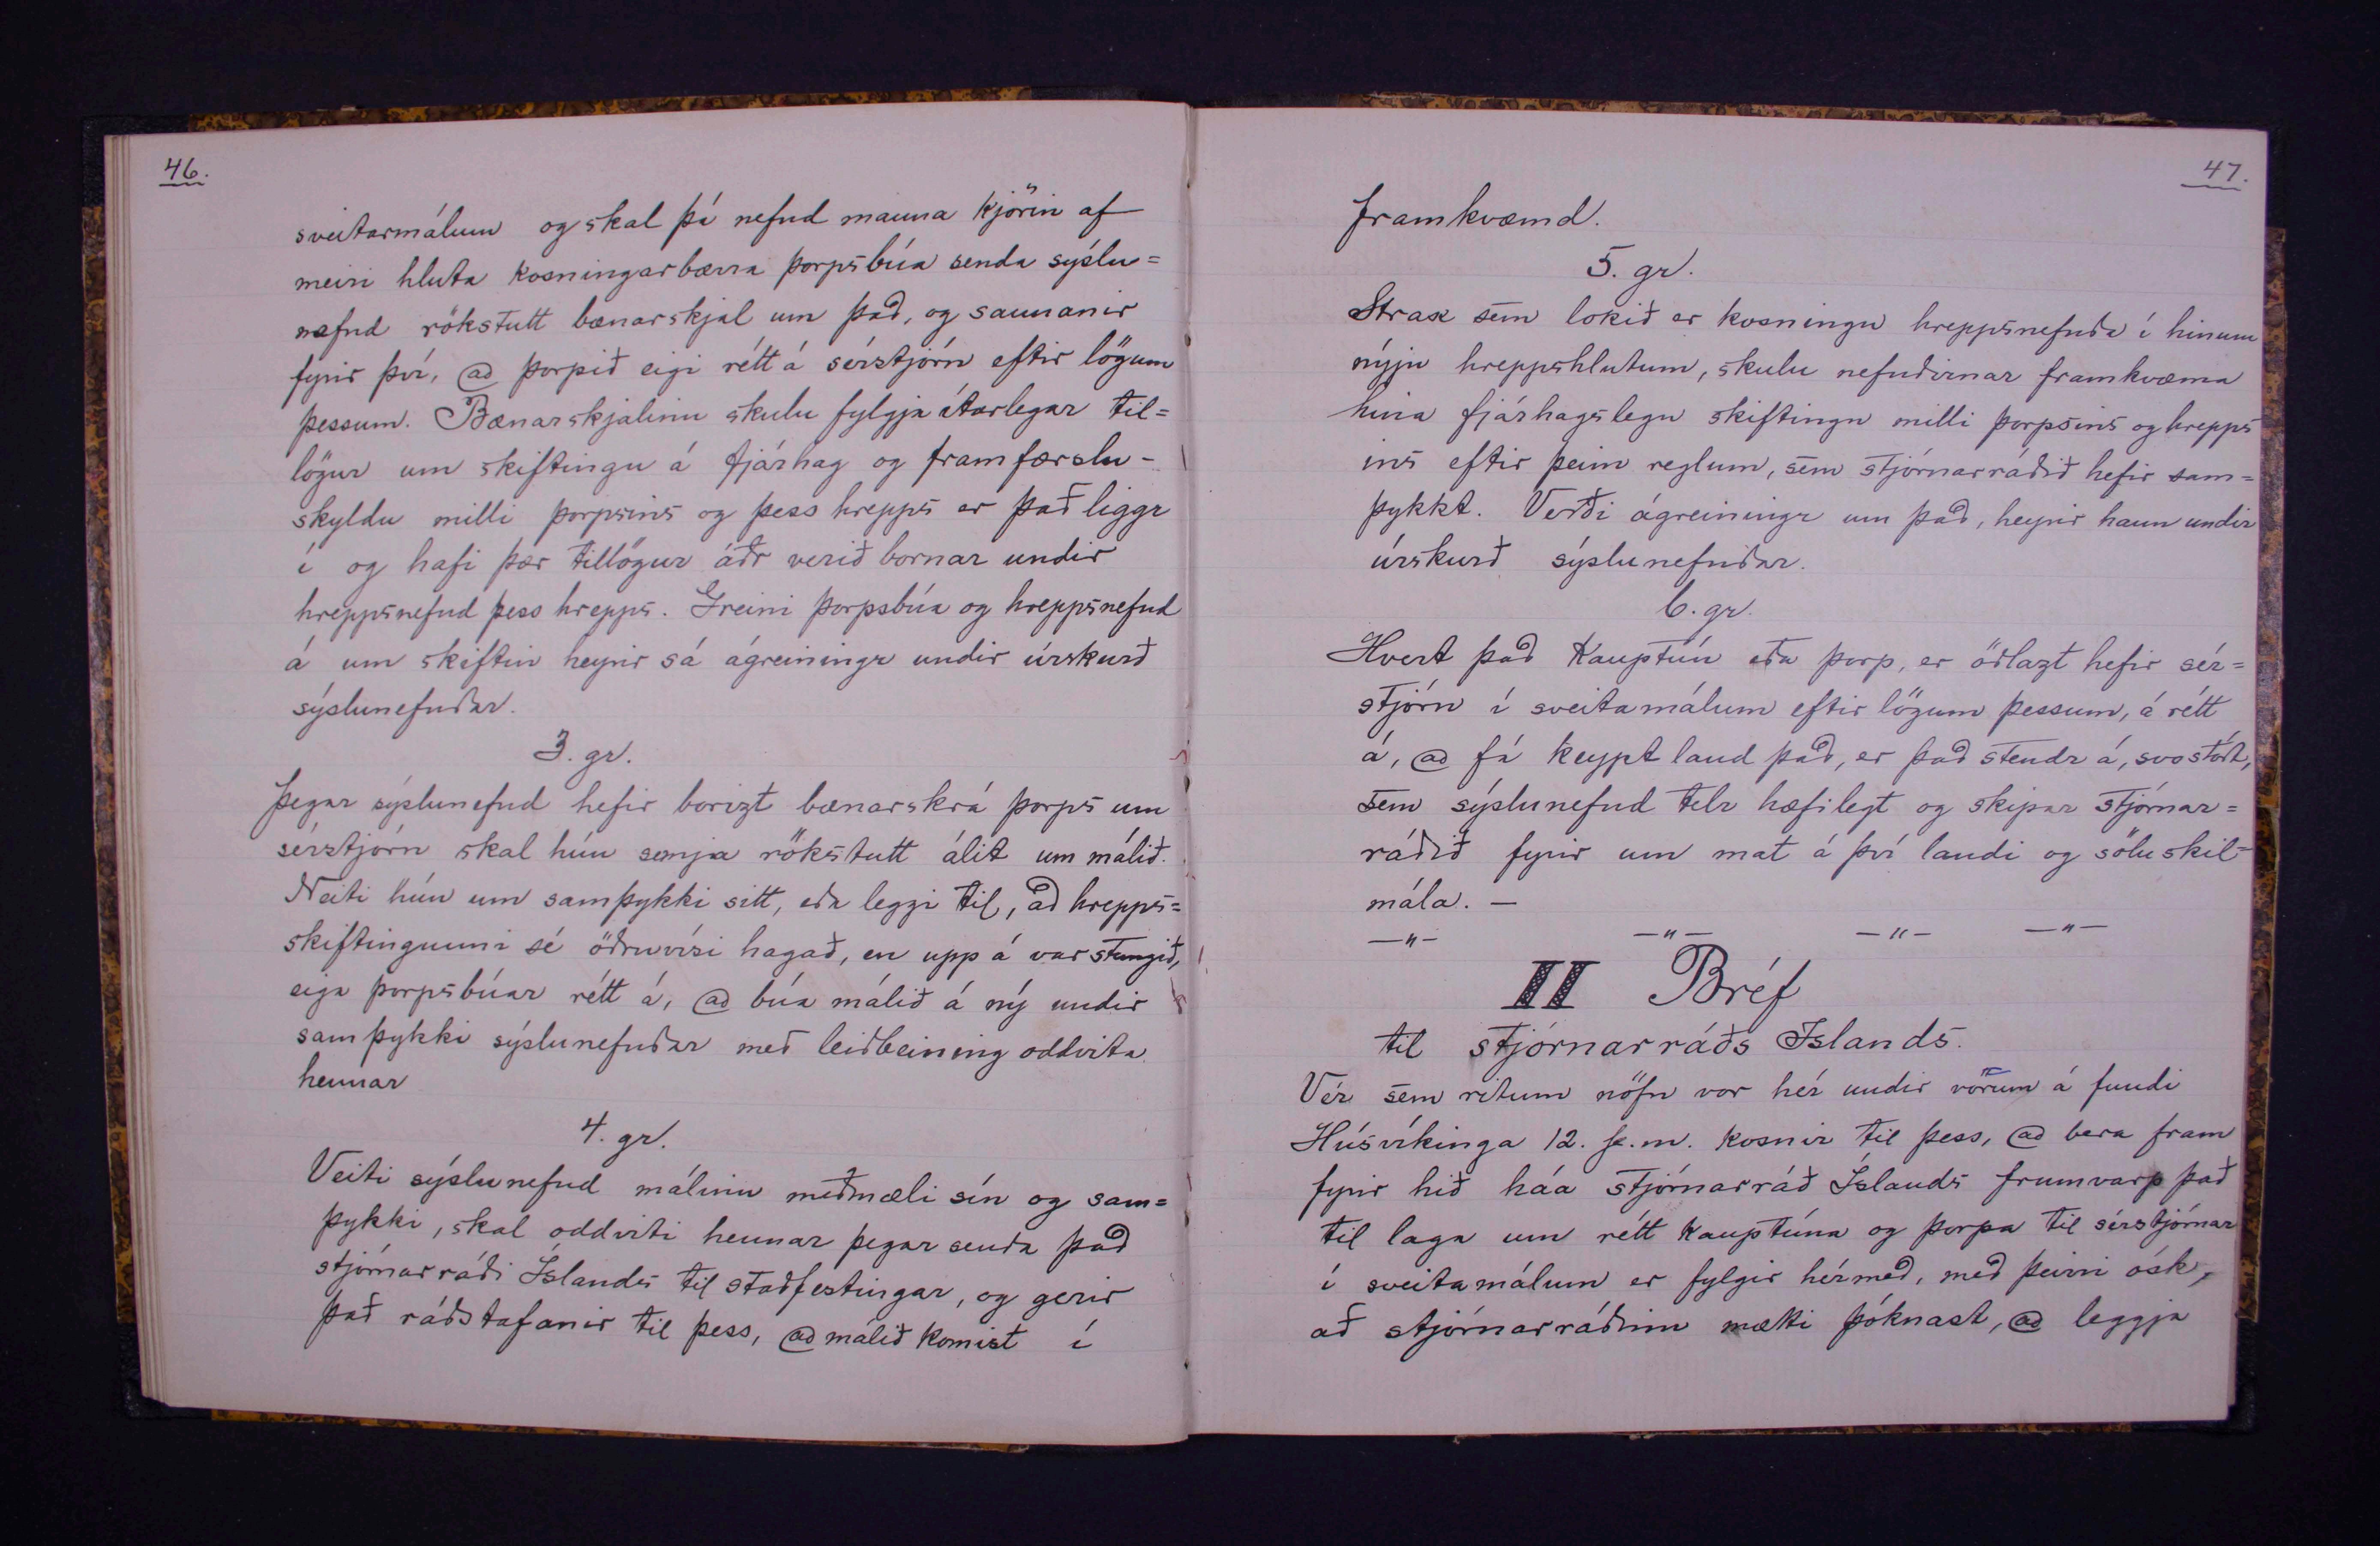 46.
sveitarmálum og skal þá nefnd manna kjörin af
meiri hluta kosningarbærra þorpsbúa senda sýslu=
nefnd rökstutt bænarskjal um það, og sannanir
fyrir því, að þorpið eigi rétt á sérstjórn eftir lögum
þessum. Bænarskjalinu skulu fylgja ítarlegar til=
lögur um skiftingu á fjárhag og framfærslu-
skyldu milli þorpsins og þess hrepps er það liggr
í og hafi þær tillögur áðr verið bornar undir
hreppsnefnd þess hrepps. Greini þorpsbúa og hreppsnefnd
á um skiftin heyrir sá ágreiningr undir úrskurð
sýslunefndar.
3. gr.
Þegar sýslunefnd hefir borizt bænarskrá þorps um
sérstjórn skal hún semja rökstutt álit um málið.
Neiti hún um samþykki sitt, eða leggi til, að hrepps=
skiftingunni sé öðruvísi hagað, en upp á var stungið,
eiga þorpsbúar rétt á, að búa málið á ný undir
samþykki sýslunefndar með leiðbeining oddvita
hennar
4. gr.
Veiti sýslunefnd málinu meðmæli sín og sam=
þykki, skal oddviti hennar þegar senda það
stjórnarráði Íslands til staðfestingar, og gerir
það ráðstafanir til þess, að málið komist í
47.
framkvæmd.
5. gr.
Strax sem lokið er kosningu hreppsnefnda í hinum
nýju hreppshlutum, skulu nefndirnar framkvæma
hina fjárhagslegu skiftingu milli þorpsins og hrepps
ins eftir þeim reglum, sem stjórnarráðið hefir sam=
þykkt. Verði ágreiningr um það, heyrir hann undir
úrskurð sýslunefndar.
6. gr.
Hvert það kauptún eða þorp, er öðlazt hefir sér=
stjórn í sveitamálum eftir lögum þessum, á rétt
á, að fá keypt land það, er það stendr á, svo stórt,
sem sýslunefnd telr hæfilegt og skipar stjórnar=
ráðið fyrir um mat á því landi og söluskil=
mála. —
—"— —"— —"— —"—
II Bréf
til stjórnarráðs Islands.
Vér sem ritum nöfn vor hér undir vórum á fundi
Húsvíkinga 12. þ.m. kosnir til þess, að bera fram
fyrir hið háa stjórnarráð Íslands frumvarp það
til laga um rétt kauptúna og þorpa til sérstjórnar
í sveitamálum er fylgir hérmeð, með þeirri ósk,
að stjórnarráðinu mætti þóknast, að leggja